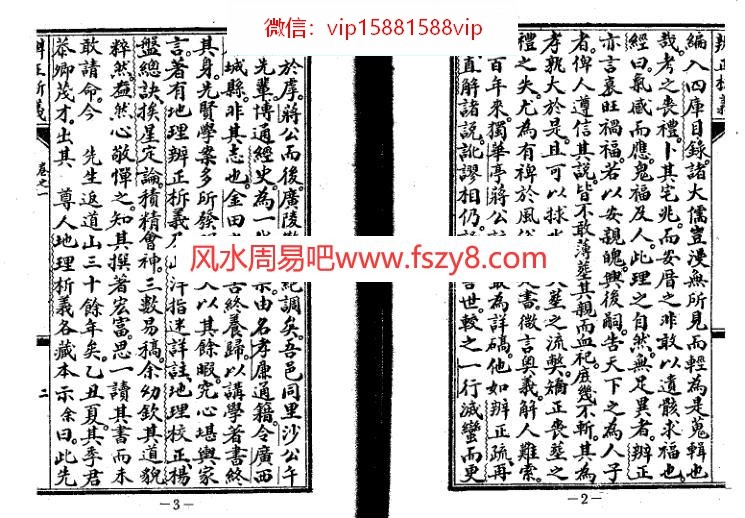 微信：vip15881588vip
辨正析義
編入四庫目錄諸大儒豈漫無所見而輕為是蒐輯也
哉考之喪禮卜其宅兆而安厝之非敢以遺骸求福也
經曰氣感而應鬼福及人此理之自然無足異者辨正
亦言衰旺禍福若以安親魄興後嗣告天下之為人子
者俾人遵信其說皆不敢薄葬其親而血祀庶幾不斬其為
孝孰大於是且可以捄
之流弊補正喪葬之
禮之失尤為有裨於風
書微言奧義解人難索
百年來獨華亭蔣公
最為詳碻他如辨正疏再
直解諸說訛謬相仍
世較之一行滅蠻而更
－2－
於摩蔣公而後廣陵
絕調矣吾邑同里沙公午
先輩博通經史為一
宗由名孝廉通籍令廣西
城縣非其志也金田
告終養歸以講學著書終
其身先賢學案多所發
人以其餘暇究心堪輿家
言著有地理辨正析義
汗指迷詳註地理校正楊
盤總訣挨星定論積精會神三數易稿余幼欽其道貌
粹然盎然心敬憚之知其撰著宏富思一讀其書而未
敢請命今 先生返道山三十餘年矣乙丑夏其季君
恭卿茂才出其 尊人地理析義各藏本示余曰此先
辨正析義
卷之一
二
－3－
风水周易吧www.fszy8.com